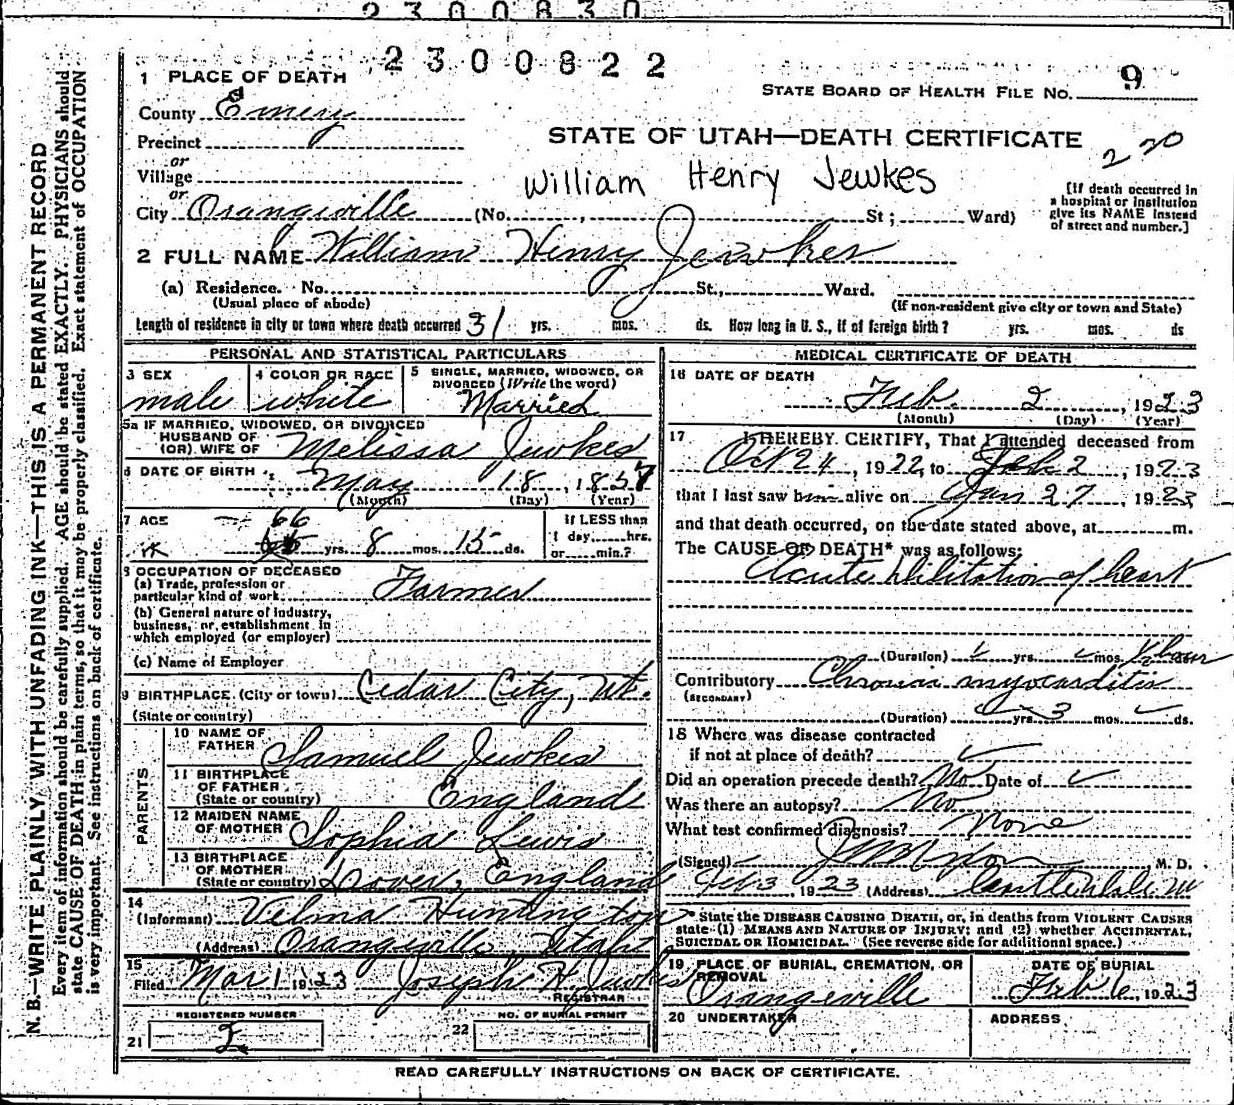 2300830
2300822
1 PLACE OF DEATH
STATE BOARD OF HEALTH FILE No. 9
County Emery
STATE OF UTAH—DEATH CERTIFICATE
220
Precinct
or
Village
William Henry Jewkes
or
City Orangeville (No. , St; Ward)
[If death occurred in
a hospital or institution
give its NAME instead
of street and number.]
2 FULL NAME William Henry Jewkes
(a) Residence. No. St., Ward.
(Usual place of abode) (If non-resident give city or town and State)
Length of residence in city or town where death occurred 31 yrs. mos. ds. How long in U. S., if of foreign birth? yrs. mos. ds
PERSONAL AND STATISTICAL PARTICULARS
3 SEX 4 COLOR OR RACE 5 SINGLE, MARRIED, WIDOWED, OR
DIVORCED (Write the word)
male white Married
5a IF MARRIED, WIDOWED, OR DIVORCED
HUSBAND OF
(OR) WIFE OF Melissa Jewkes
6 DATE OF BIRTH May 18, 1857
(Month) (Day) (Year)
7 AGE 66 yrs. 8 mos. 15 ds.
If LESS than
1 day, hrs.
or min.?
8 OCCUPATION OF DECEASED
(a) Trade, profession or
particular kind of work Farmer
(b) General nature of industry,
business, or establishment in
which employed (or employer)
(c) Name of Employer
9 BIRTHPLACE (City or town) Cedar City, Ut.
(State or country)
PARENTS
10 NAME OF
FATHER Samuel Jewkes
11 BIRTHPLACE
OF FATHER
(State or country) England
12 MAIDEN NAME
OF MOTHER Sophia Lewis
13 BIRTHPLACE
OF MOTHER
(State or country) Dover, England
14
(Informant) Velma Huntington
(Address) Orangeville, Utah
15
Filed Mar 1 1923 Joseph H. Jewkes
REGISTRAR
REGISTERED NUMBER
21 2
NO. OF BURIAL PERMIT
22
MEDICAL CERTIFICATE OF DEATH
16 DATE OF DEATH
Feb. 2, 1923
(Month) (Day) (Year)
17 I HEREBY CERTIFY, That I attended deceased from
Oct 24, 1922, to Feb 2, 1923
that I last saw him alive on Jan 27, 1923
and that death occurred, on the date stated above, at m.
The CAUSE OF DEATH* was as follows:
Acute Dilitation of heart
(Duration) yrs. mos. 1 hour
Contributory Chronic myocarditis
(SECONDARY)
(Duration) yrs. 3 mos. ds.
18 Where was disease contracted
if not at place of death?
Did an operation precede death? No Date of
Was there an autopsy? No
What test confirmed diagnosis? None
(Signed) M. D.
Feb 3 1923 (Address) Castledale Ut
*State the DISEASE CAUSING DEATH, or, in deaths from VIOLENT CAUSES
state (1) MEANS AND NATURE OF INJURY; and (2) whether ACCIDENTAL,
SUICIDAL OR HOMICIDAL. (See reverse side for additional space.)
19 PLACE OF BURIAL, CREMATION, OR
REMOVAL
Orangeville
DATE OF BURIAL
Feb 6, 1923
20 UNDERTAKER ADDRESS
READ CAREFULLY INSTRUCTIONS ON BACK OF CERTIFICATE.
N. B.—WRITE PLAINLY, WITH UNFADING INK—THIS IS A PERMANENT RECORD
Every item of information should be carefully supplied. AGE should be stated EXACTLY. PHYSICIANS should
state CAUSE OF DEATH in plain terms, so that it may be properly classified. Exact statement of OCCUPATION
is very important. See instructions on back of certificate.